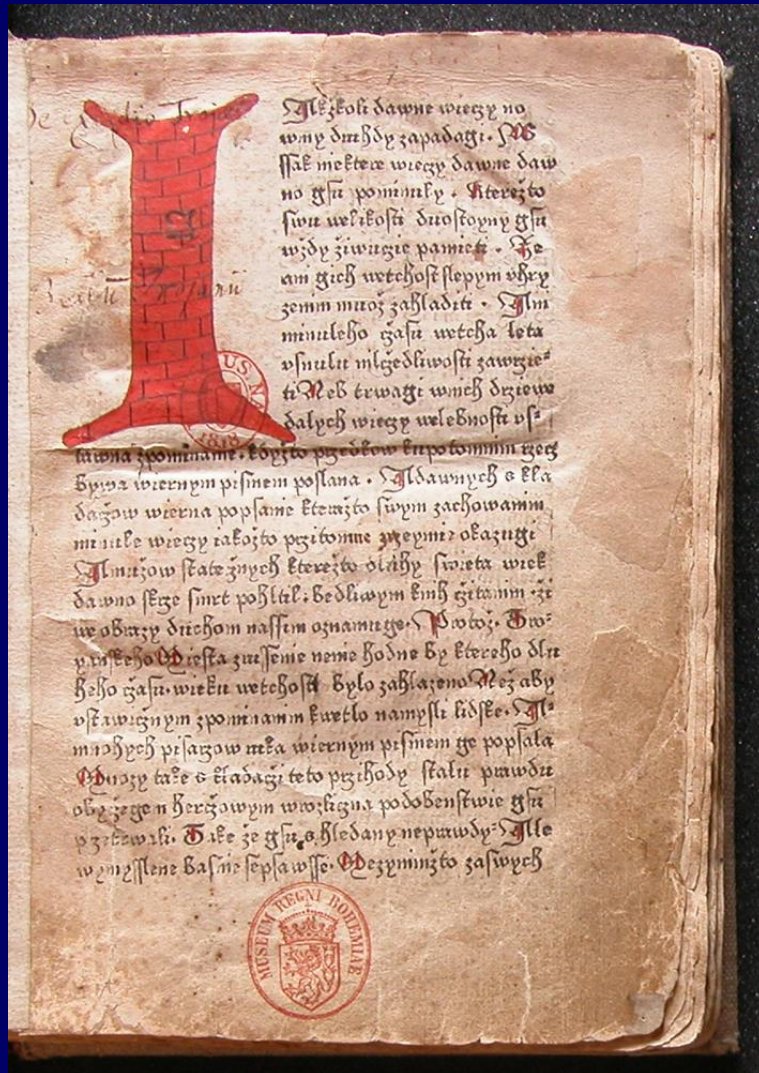 Ilkžkoli dawne wieczy no
winy druhdy zapadagi. WS
ssak niektere wieczy dawne daw
no gsu pominuly. Kterežto
swu welikosti duostoyny gsu
wždy žiwuczie pamieti. Že
am gich wetchost slepym vhry
zenim muož zahladiti. Ani
minuleho čzasu wetcha leta
vsnulu mlčzedliwosti zawrzie=
ti Neb trwagi wnich drziewe
dalych wieczy welebnosti vs=
tawna zpominanie. kdyžto przedkow kupotomnim rzecz
bywa wiernym pismem poslana. Adawnych skla
daczow wierna popsanie kteražto swym zachowanim
minule wieczy iakožto przitomne okazugi
Amužow statečznych kterežto dluhy swieta wiek
dawno skrze smrt pohltil. bedliwym knih čzitanim. ži
we obrazy duchom nassim oznamuge. Protož. Tro=
yanskeho Miesta zrussenie nenie hodne by ktereho dlu
heho čzasu. wieku wetchosti bylo zahlazeno Než aby
vstawičznym zpominanim kwetlo namysli lidske. A=
mnohych pisarzow ruka wiernym pismem ge popsala
Mnozy take skladagi teto przihody stalu prawdu
obyčzegem herczowym wrozličzna podobenstwie gsu
Take že gsu shledany neprawdy. Ale
wymyslene basnie sepsawsse. Mezynimižto zaswych
MUSEUM REGNI BOHEMIAE
1818